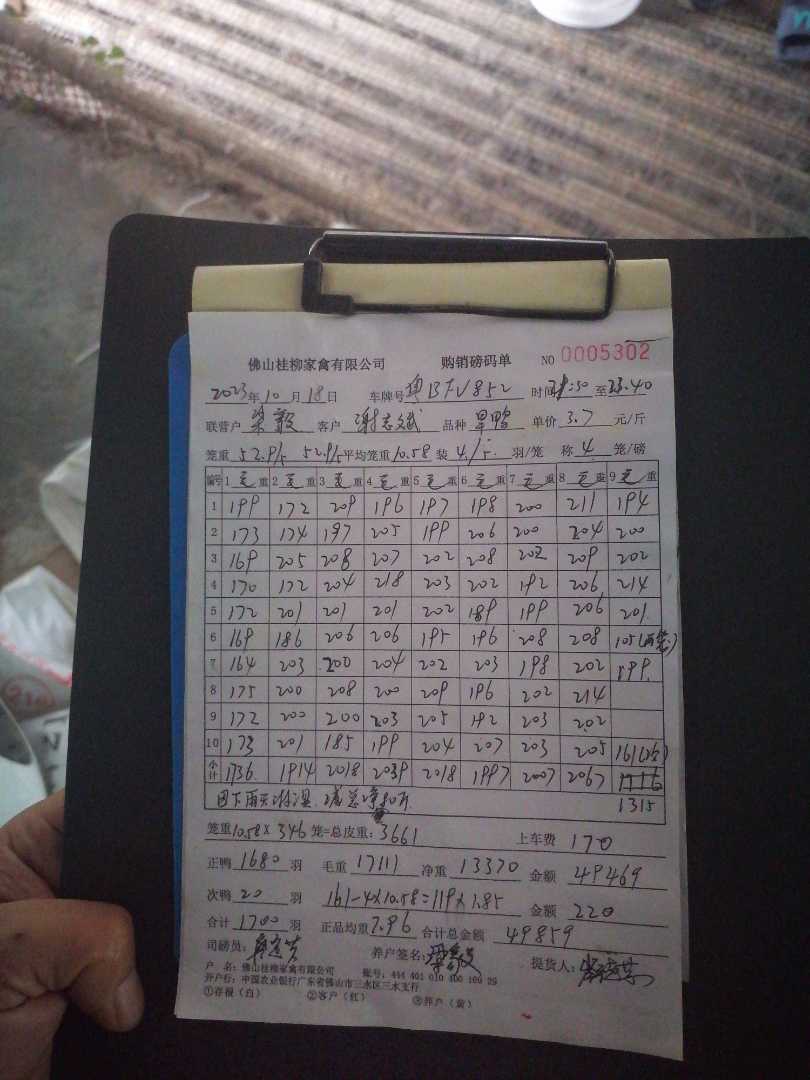 佛山桂柳家禽有限公司 购销磅码单 NO 0005302
2023年10月18日 车牌号 粤BFV852 时间 :50 至23:40
联营户 梁毅 客户 谢志斌 品种 旱鸭 单价 3.7 元/斤
笼重 52.9/5 52.9/5 平均笼重 10.58 装 4./5. 羽/笼 称 4 笼/磅
编号 1毛重 2毛重 3毛重 4毛重 5毛重 6毛重 7毛重 8毛重 9毛重
1 199 172 209 196 197 198 200 211 194
2 173 174 197 205 199 206 200 204 200
3 169 205 208 207 202 208 202 209 202
4 170 172 204 218 203 202 192 206 214
5 172 201 201 201 202 189 199 206 201
6 169 186 206 206 195 196 208 208 105(两笼)
7 164 203 200 204 202 203 198 202 199
8 175 200 208 200 209 196 202 214
9 172 200 200 203 205 192 203 202
10 173 201 185 199 204 207 203 205 161(次)
小计 1736 1914 2018 2039 2018 1997 2007 2067
1315
因下雨天淋湿 总净80斤
笼重10.58×346笼=总皮重:3661 上车费 170
正鸭 1680 羽 毛重 17111 净重 13370 金额 49469
次鸭 20 羽 161-4×10.58=119×1.85 金额 220
合计 1700 羽 正品均重 7.96 合计总金额 49859
司磅员: 养户签名: 梁毅 提货人:
户 名:佛山桂柳家禽有限公司 账号:444 401 010 400 109 29
开户行:中国农业银行广东省佛山市三水区三水支行
①存根(白) ②客户(红) ③养户(黄)